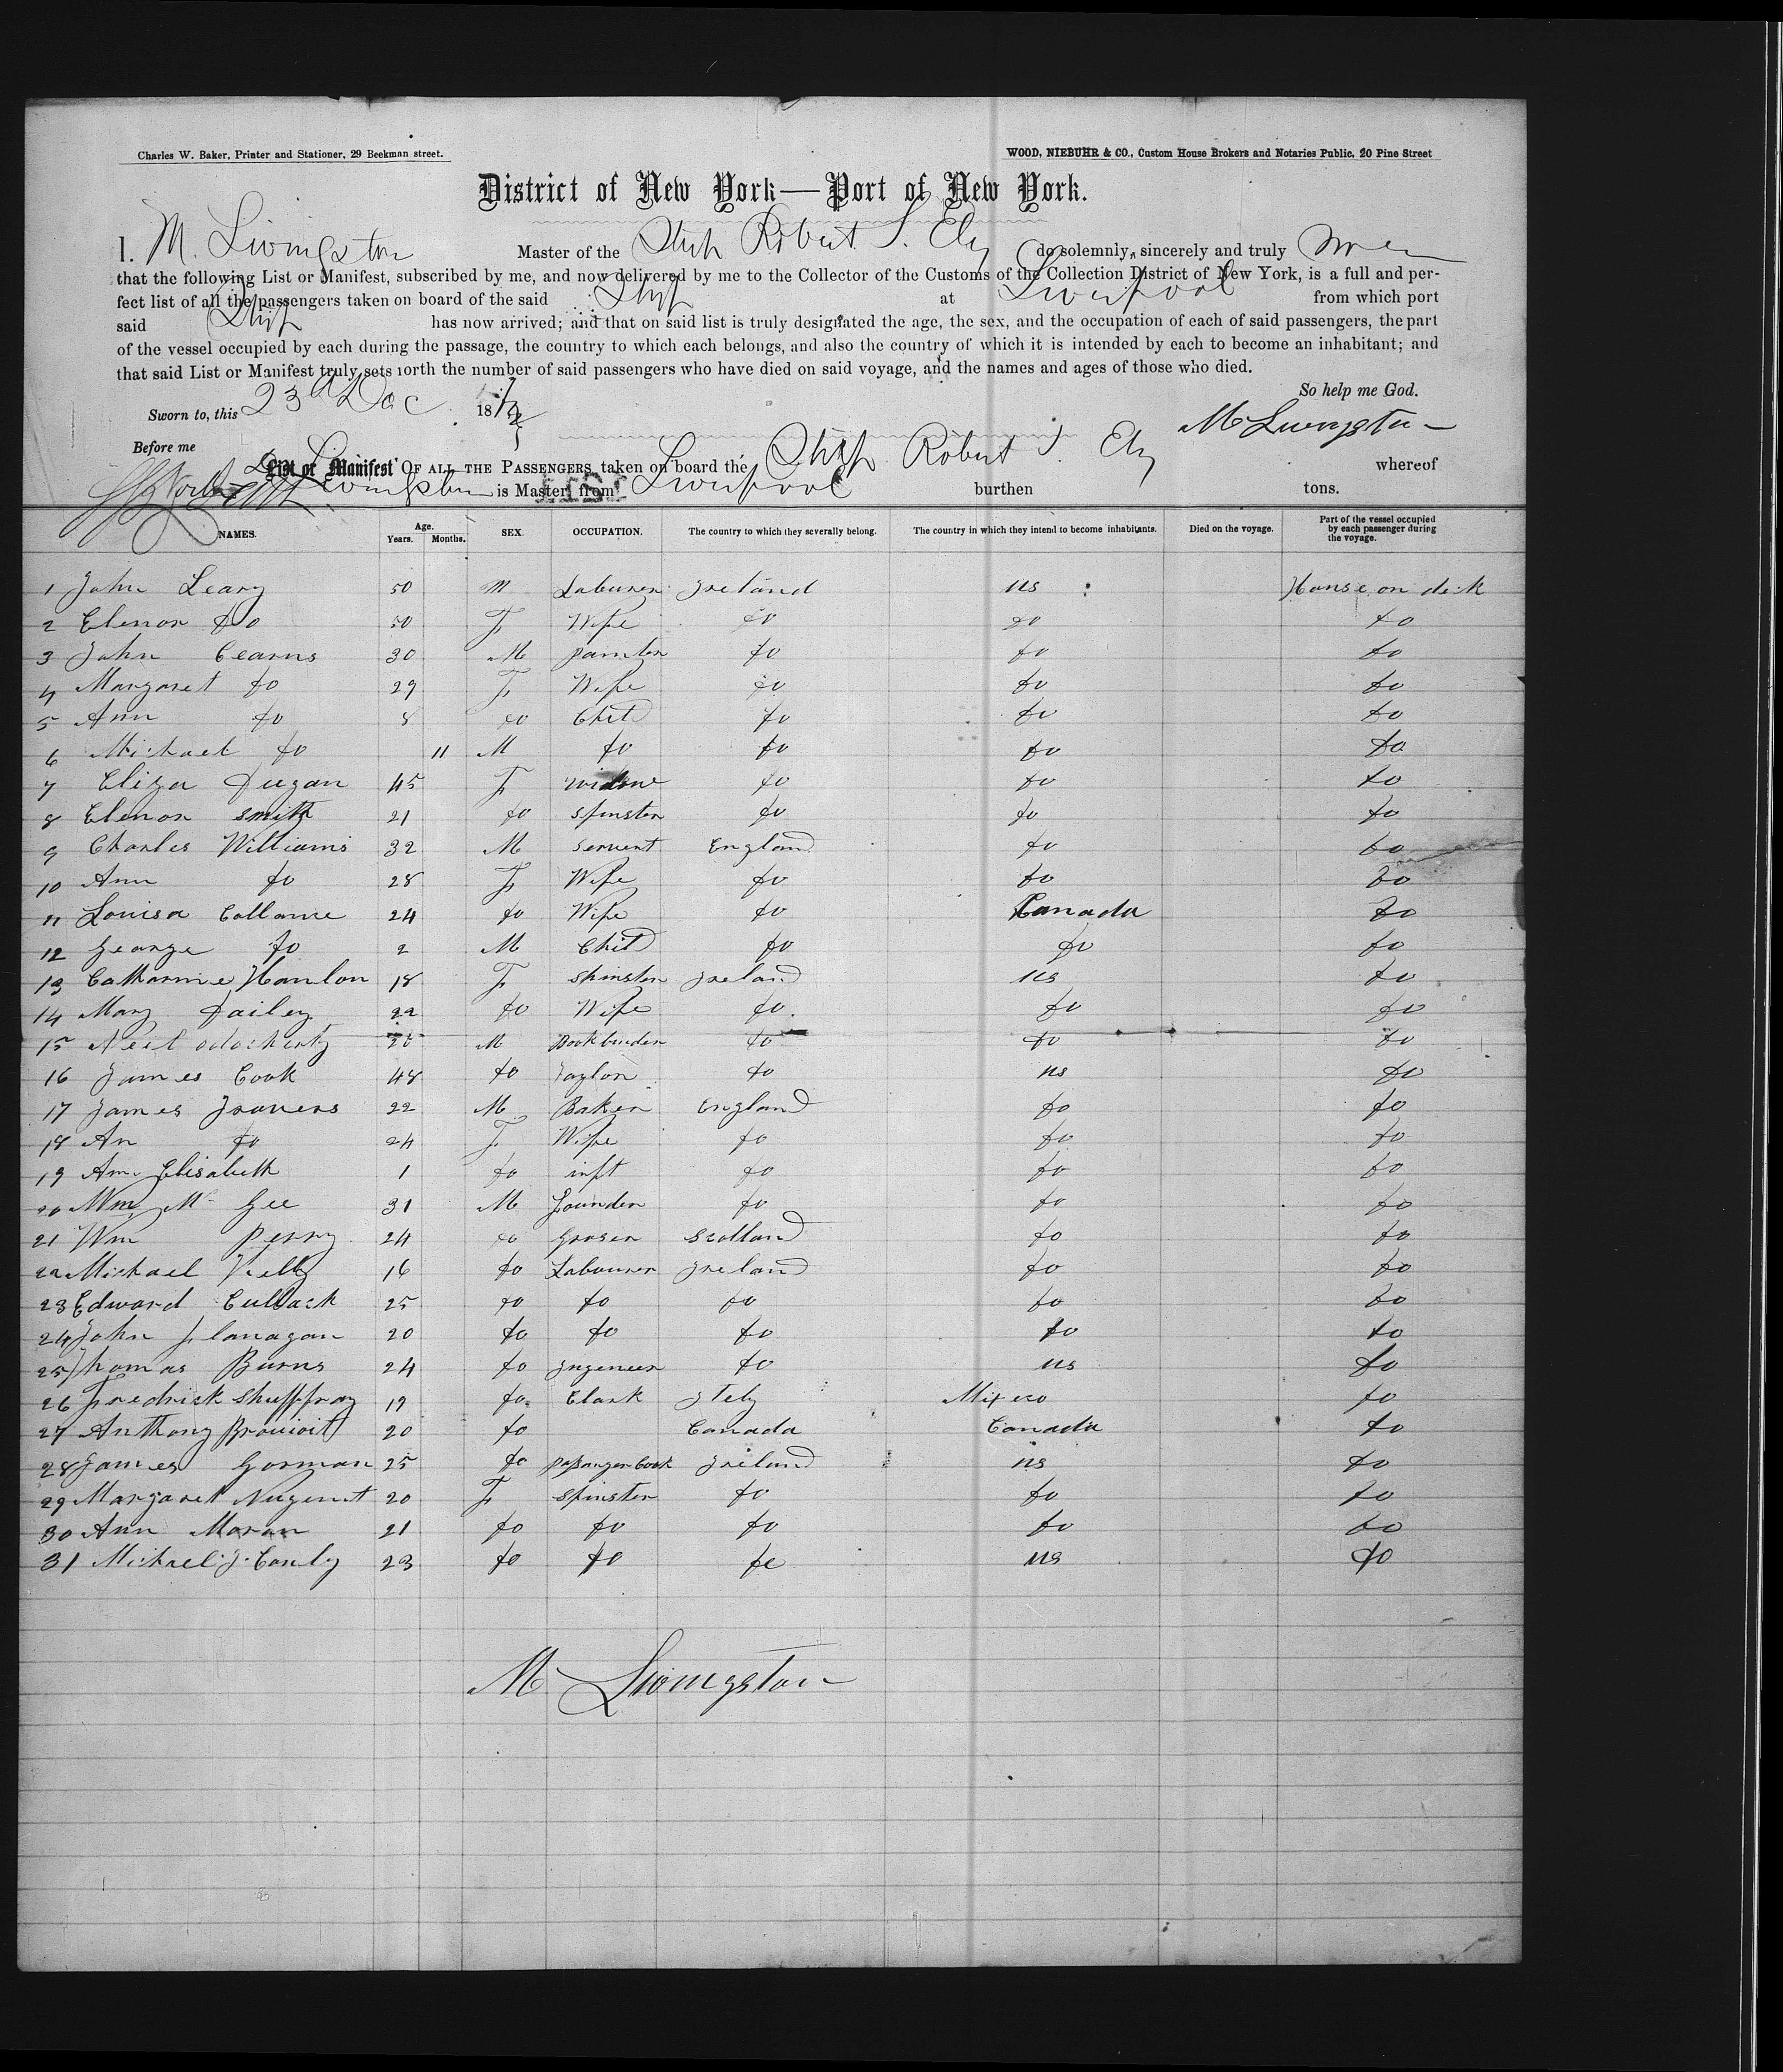 Charles W. Baker, Printer and Stationer, 29 Beekman street. WOOD, NIEBUHR & CO., Custom House Brokers and Notaries Public, 20 Pine Street
District of New York—Port of New York.
I, M. Livingston Master of the Ship Robert L. Ely do solemnly, sincerely and truly swear
that the following List or Manifest, subscribed by me, and now delivered by me to the Collector of the Customs of the Collection District of New York, is a full and per-
fect list of all the passengers taken on board of the said Ship at Liverpool from which port
said Ship has now arrived; and that on said list is truly designated the age, the sex, and the occupation of each of said passengers, the part
of the vessel occupied by each during the passage, the country to which each belongs, and also the country of which it is intended by each to become an inhabitant; and
that said List or Manifest truly sets forth the number of said passengers who have died on said voyage, and the names and ages of those who died.
So help me God.
Sworn to, this 23d Dec 18
M Livingston
Before me
List or Manifest OF ALL THE PASSENGERS taken on board the Ship Robert L. Ely whereof
Livingston is Master, from Liverpool burthen tons.
NAMES. Age. Years. Months. SEX. OCCUPATION. The country to which they severally belong. The country in which they intend to become inhabitants. Died on the voyage. Part of the vessel occupied by each passenger during the voyage.
1 John Leary 50 M Labourer Ireland US House on deck
2 Elenor do 50 F Wife do do do
3 John Cearns 30 M painter do do do
4 Margaret do 29 F Wife do do do
5 Ann do 8 do Child do do do
6 Michael do 11 M do do do do
7 Eliza Dugan 45 F widow do do do
8 Elenor Smith 21 do Spinster do do do
9 Charles Williams 32 M Servent England do do
10 Ann do 28 F Wife do do do
11 Louisa Collame 24 do Wife do Canada do
12 George do 2 M Child do do do
13 Catharine Hanlon 18 F Spinster Ireland US do
14 Mary Dailey 22 do Wife do do do
15 Neil odocherty M Bookbinder do do do
16 James Cook 48 do Taylor do US do
17 James Travers 22 M Baker England do do
18 An do 24 F Wife do do do
19 Ann Elisabeth 1 do inft do do do
20 Wm Mc Gee 31 M Founder do do do
21 Wm Perry 24 do Groser Scotland do do
22 Michael Kelly 16 do Labourer Ireland do do
23 Edward Cullack 25 do do do do do
24 John Flanagan 20 do do do do do
25 Thomas Burns 24 do Ingeneer do US do
26 Fredrick Shuffray 19 do Clark Itely Mixeco do
27 Anthony 20 do Canada Canada do
28 James Gorman 25 do passanger Cook Ireland US do
29 Margaret Nugent 20 F Spinster do do do
30 Ann Moran 21 do do do do do
31 Michael J. Conly 23 do do do US do
M Livingston